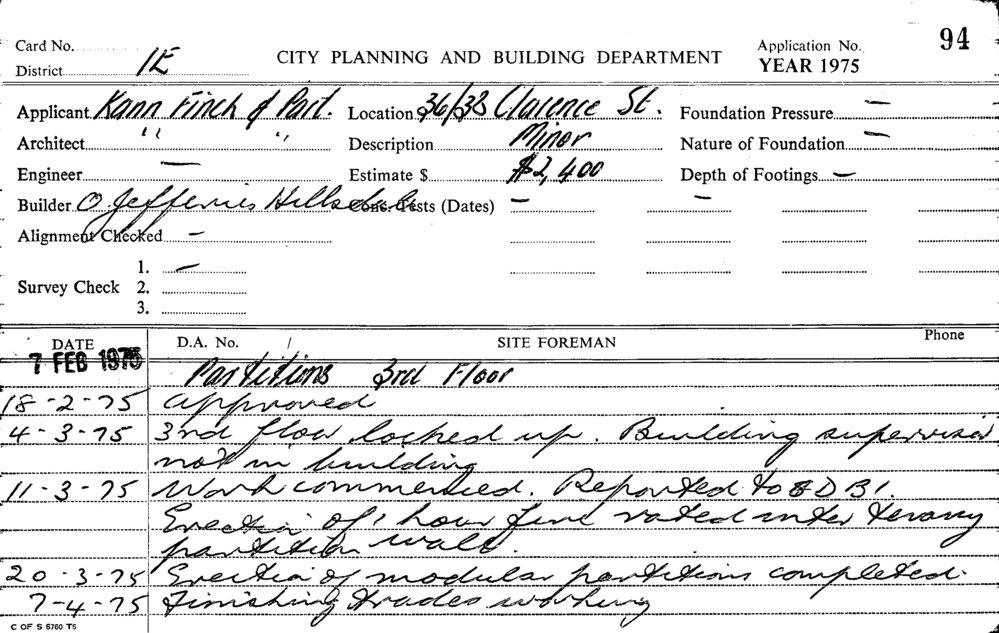 Card No. 94
District 1E CITY PLANNING AND BUILDING DEPARTMENT Application No.
YEAR 1975
Applicant Kann Finch & Part. Location 36/38 Clarence St. Foundation Pressure —
Architect " " Description Minor Nature of Foundation —
Engineer — Estimate $ $2,400 Depth of Footings —
Builder O Jefferries Conc. Tests (Dates) — —
Alignment Checked —
1. —
Survey Check 2.
3.
DATE D.A. No. / SITE FOREMAN Phone
7 FEB 1975
Partitions 3rd Floor
18-2-75 approved
4-3-75 3rd floor locked up. Building supervisor
not in building
11-3-75 Work commenced. Reported to DBI.
Erection of 1 hour fire rated inter tenancy
partition wall.
20-3-75 Erection of modular partitions completed.
7-4-75 Finishing trades working
C OF S 6760 T5